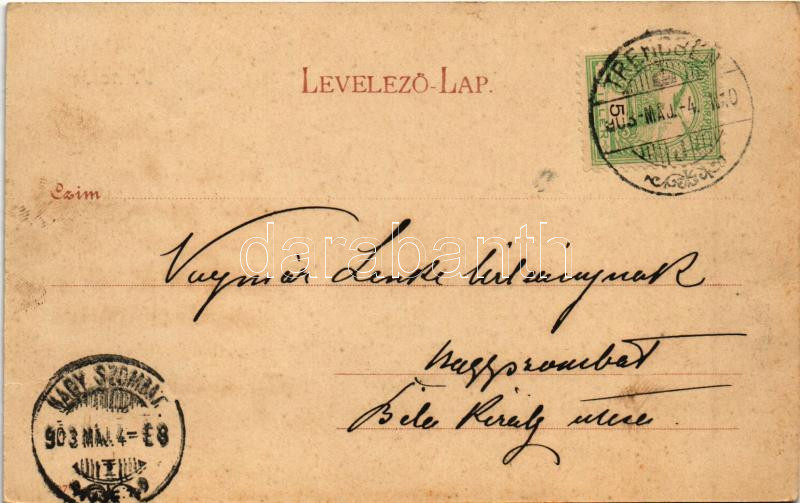 LEVELEZŐ-LAP.
TRENCSÉN
903 MÁJ. -4.
5
Czim
Lenke
Nagyszombat
Béla Király utcza
NAGY SZOMBAT
903 MÁJ. 4 - E8
darabanth